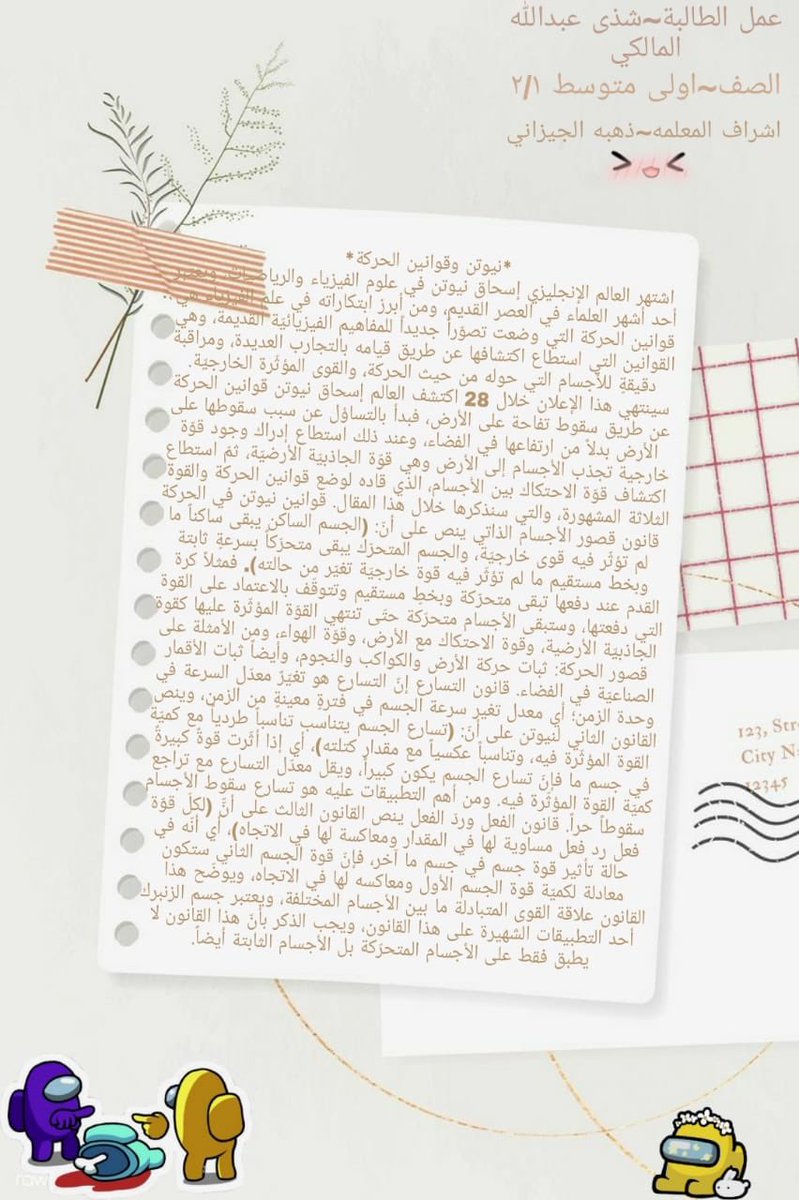 عمل الطالبة~شذى عبدالله
المالكي
الصف~اولى متوسط ٢/١
اشراف المعلمه~ذهبه الجيزاني
*نيوتن وقوانين الحركة*
اشتهر العالم الإنجليزي إسحاق نيوتن في علوم الفيزياء والرياضيات، ويعتبر
أحد أشهر العلماء في العصر القديم، ومن أبرز ابتكاراته في علم الفيزياء هي
قوانين الحركة التي وضعت تصوّراً جديداً للمفاهيم الفيزيائيّة القديمة، وهي
القوانين التي استطاع اكتشافها عن طريق قيامه بالتجارب العديدة، ومراقبة
دقيقةِ للأجسام التي حوله من حيث الحركة، والقوى المؤثّرة الخارجيّة.
سينتهي هذا الإعلان خلال 28 اكتشف العالم إسحاق نيوتن قوانين الحركة
عن طريق سقوط تفاحة على الأرض، فبدأ بالتساؤل عن سبب سقوطها على
الأرض بدلاً من ارتفاعها في الفضاء، وعند ذلك استطاع إدراك وجود قوّة
خارجية تجذب الأجسام إلى الأرض وهي قوّة الجاذبيّة الأرضيّة، ثمّ استطاع
اكتشاف قوّة الاحتكاك بين الأجسام، الذي قاده لوضع قوانين الحركة والقوة
الثلاثة المشهورة، والتي سنذكرها خلال هذا المقال. قوانين نيوتن في الحركة
قانون قصور الأجسام الذاتي ينص على أن: (الجسم الساكن يبقى ساكناً ما
لم تؤثّر فيه قوى خارجيّة، والجسم المتحرّك يبقى متحرّكاً بسرعةٍ ثابتة
وبخط مستقيم ما لم تؤثّر فيه قوة خارجيّة تغيّر من حالته). فمثلاً كرة
القدم عند دفعها تبقى متحرّكة وبخطٍ مستقيم وتتوقّف بالاعتماد على القوة
التي دفعتها، وستبقى الأجسام متحرّكة حتّى تنتهي القوّة المؤثّرة عليها كقوة
الجاذبيّة الأرضية، وقوة الاحتكاك مع الأرض، وقوّة الهواء، ومن الأمثلة على
قصور الحركة: ثبات حركة الأرض والكواكب والنجوم، وأيضاً ثبات الأقمار
الصناعيّة في الفضاء. قانون التسارع إنّ التسارع هو تغيّرٌ معدّل السرعة في
وحدة الزمن؛ أي معدل تغير سرعة الجسم في فترةٍ معينةٍ من الزمن، وينص
القانون الثاني لنيوتن على أنّ: (تسارع الجسم يتناسب تناسباً طردياً مع كميّة
القوة المؤثّرة فيه، وتناسباً عكسياً مع مقدار كتلته)، أي إذا أثّرت قوةٌ كبيرةٌ
في جسم ما فإنّ تسارع الجسم يكون كبيراً، ويقل معدّل التسارع مع تراجع
كميّة القوة المؤثّرة فيه. ومن أهم التطبيقات عليه هو تسارع سقوط الأجسام
سقوطاً حراً. قانون الفعل وردّ الفعل ينص القانون الثالث على أنَّ (لكلّ قوّة
فعل رد فعل مساوية لها في المقدار ومعاكسة لها في الاتجاه)، أي أنّه في
حالة تأثير قوة جسم في جسم ما آخر، فإنّ قوة الجسم الثاني ستكون
معادلة لكميّة قوة الجسم الأول ومعاكسه لها في الاتجاه، ويوضّح هذا
القانون علاقة القوى المتبادلة ما بين الأجسام المختلفة، ويعتبر جسم الزنبرك
أحد التطبيقات الشهيرة على هذا القانون، ويجب الذكر بأنّ هذا القانون لا
يطبق فقط على الأجسام المتحرّكة بل الأجسام الثابتة أيضاً.
123, Stre
City N
12345